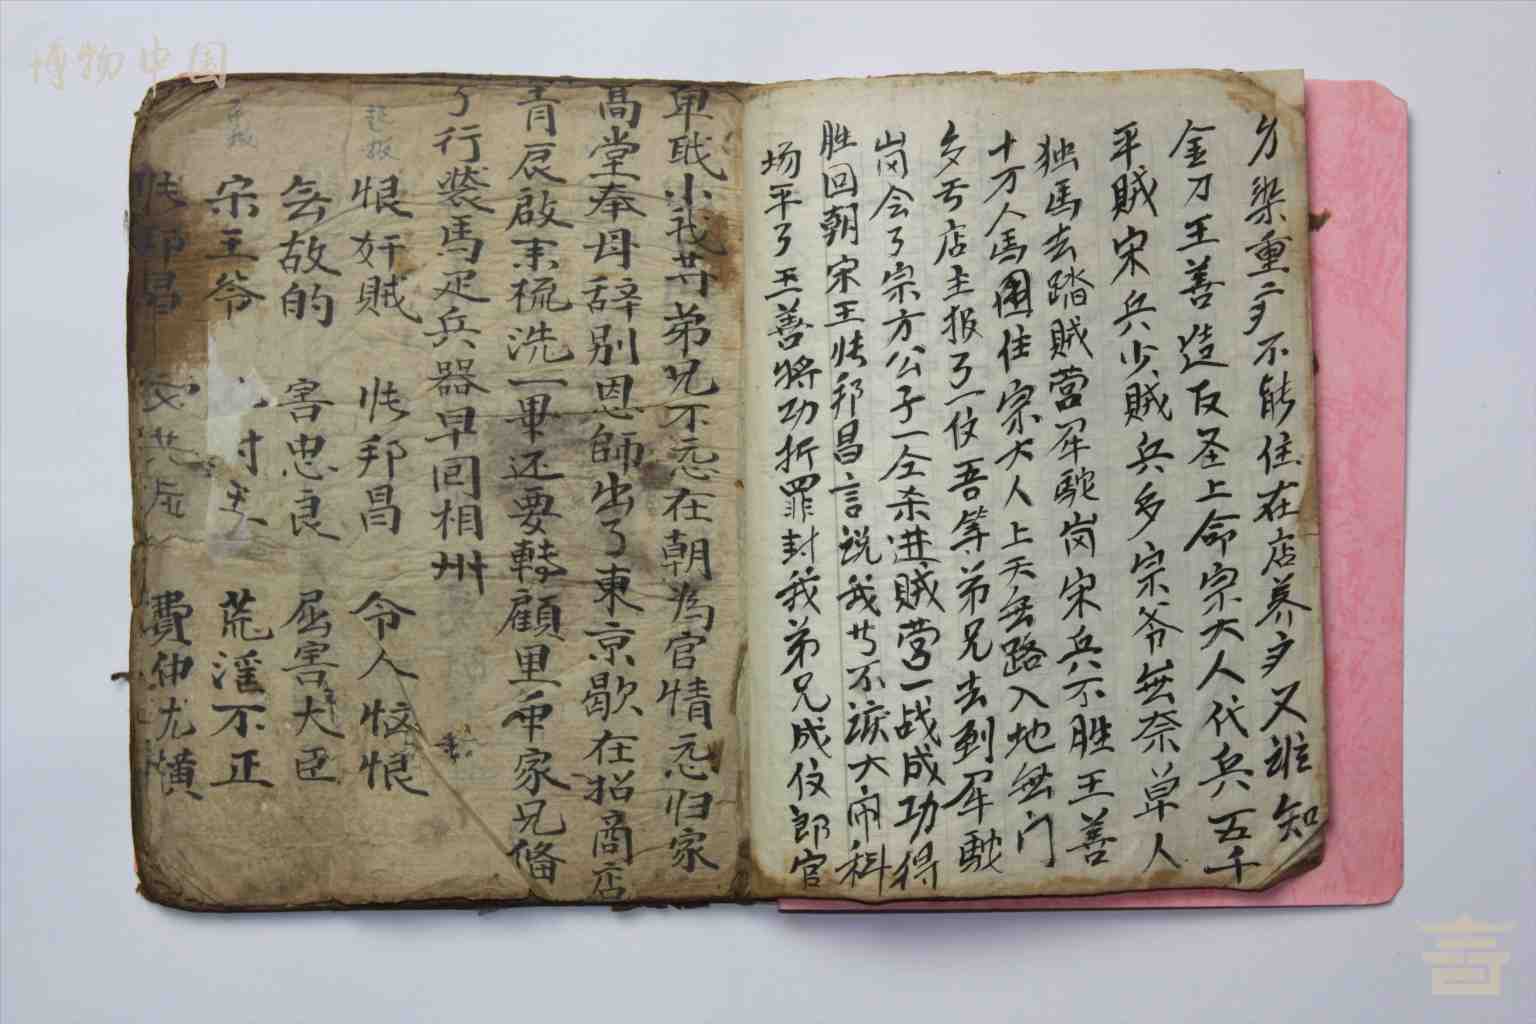 博物中国
方染重 不能住在店养 又谁知
金刀王善造反圣上命宗大人代兵五千
平贼宋兵少贼兵多宗爷無奈单人
独馬去踏贼营 岗宋兵不胜王善
十万人馬困住宗大人上天無路入地無门
多亏店主报了一伩吾等弟兄去到
岗会了宗方公子一仝杀进贼营一战成功得
胜回朝宋王张邦昌言说我 不 大闹科
场平了王善将功折罪封我弟兄成伩郎官
卑职小我 弟兄不忘在朝為官情忘归家
高堂奉母辞别恩師出了東京歇在招商店
青辰啟来梳洗一畢还要轉顧里 家兄俻
了行裝馬疋兵器早囘相州
恨奸贼 张邦昌 令人怄恨
無故的 害忠良 屈害大臣
宋王爷 紂王 荒淫不正
张邦昌 費仲尤横